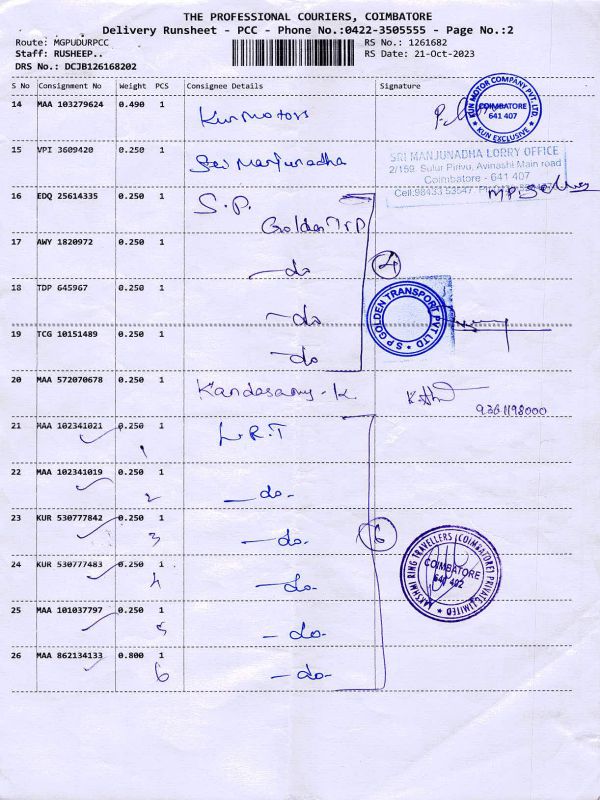 THE PROFESSIONAL COURIERS, COIMBATORE
Delivery Runsheet - PCC - Phone No.:0422-3505555 - Page No.:2
Route: MGPUDURPCC RS No.: 1261682
Staff: RUSHEEP.. RS Date: 21-Oct-2023
DRS No.: DCJB126168202
S No Consignment No Weight PCS Consignee Details Signature
14 MAA 103279624 0.490 1 Kun Motors
KUN MOTOR COMPANY PVT. LTD. COIMBATORE 641 407 * KUN EXCLUSIVE *
15 VPI 3609420 0.250 1 Sri Manjunadha
SRI MANJUNADHA LORRY OFFICE
2/159, Sulur Pirivu, Avinashi Main road
Coimbatore - 641 407
Cell:98433 53547
16 EDQ 25614335 0.250 1 S.P.
Golden TrP
17 AWY 1820972 0.250 1 -do
4
18 TDP 645967 0.250 1 -do
S P GOLDEN TRANSPORT PVT LTD *
19 TCG 10151489 0.250 1 -do
20 MAA 572070678 0.250 1 Kandasamy-K
9361198000
21 MAA 102341021 0.250 1 L.R.T
1
22 MAA 102341019 0.250 1 -do-
2
23 KUR 530777842 0.250 1 -do-
3 6
24 KUR 530777483 0.250 1 -do-
4
LAKSHMI RING TRAVELLERS (COIMBATORE) PRIVATE LIMITED * COIMBATORE 641 402
25 MAA 101037797 0.250 1 -do-
5
26 MAA 862134133 0.800 1 -do-
6